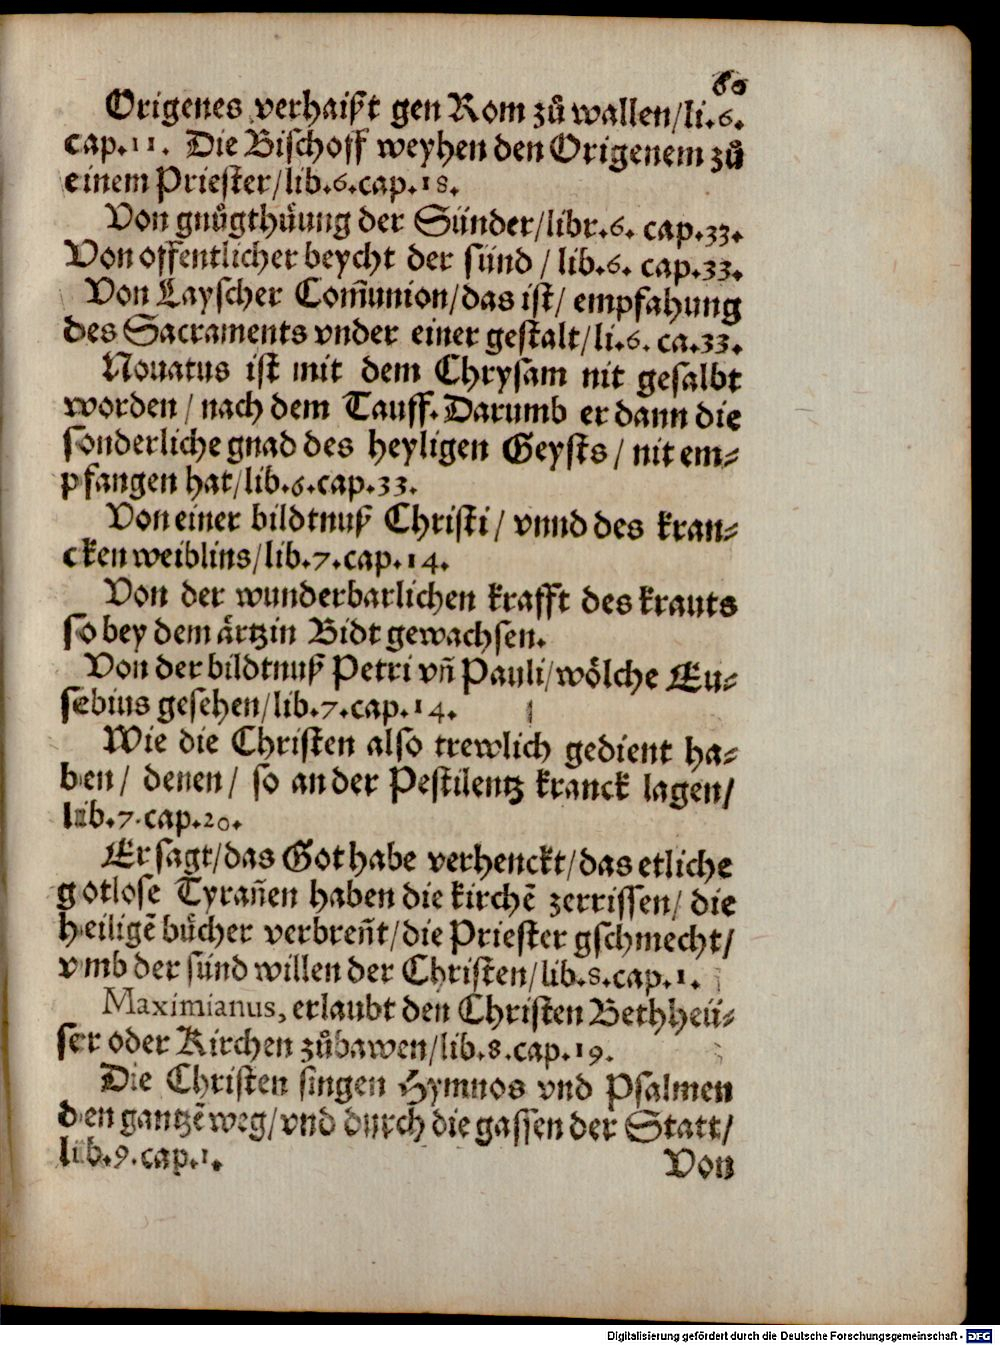 60
Origenes verhaißt gen Rom zů wallen/li.6.
cap.11. Die Bischoff weyhen den Origenem zů
einem Priester/lib.6.cap.18.
Von gnůgthůung der Sünder/libr.6. cap.33.
Von offentlicher beycht der sünd / lib.6. cap.33.
Von Layscher Com̃union/das ist/ empfahung
des Sacraments vnder einer gestalt/li.6. ca.33.
Nouatus ist mit dem Chrysam nit gesalbt
worden / nach dem Tauff. Darumb er dann die
sonderliche gnad des heyligen Geysts / nit em⸗
pfangen hat/lib.6.cap.33.
Von einer bildtnuß Christi / vnnd des kran⸗
cken weiblins/lib.7.cap.14.
Von der wunderbarlichen krafft des krauts
so bey dem ärtzin Bidt gewachsen.
Von der bildtnuß Petri vñ Pauli/wölche Eu⸗
sebius gesehen/lib.7.cap.14.
Wie die Christen also trewlich gedient ha⸗
ben/ denen/ so an der Pestilentz kranck lagen/
lib.7.cap.20.
Er sagt/das Got habe verhenckt/das etliche
gotlose Tyrañen haben die kirchẽ zerrissen/ die
heiligẽ bücher verbreñt/die Priester gschmecht/
vmb der sünd willen der Christen/lib.8.cap.1.
Maximianus, erlaubt den Christen Bethheü⸗
ser oder Kirchen zůbawen/lib.8.cap.19.
Die Christen singen Hymnos vnd Psalmen
den gantzẽ weg/vnd durch die gassen der Statt/
lib.9.cap.1.
Von
Digitalisierung gefördert durch die Deutsche Forschungsgemeinschaft - DFG